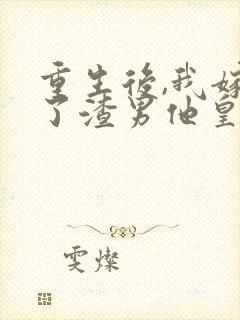 重生後,我嫁
了渣男他皇
雯燦